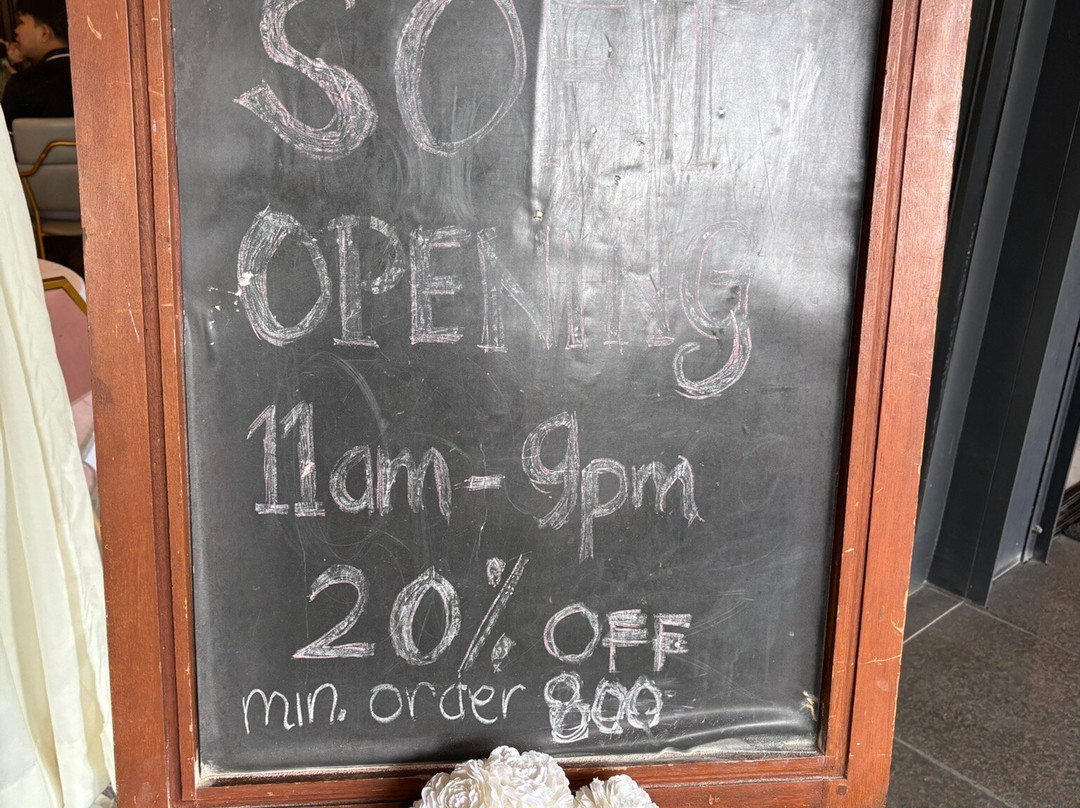 SOFT
OPENING
11am - 9pm
20% OFF
min. order 800